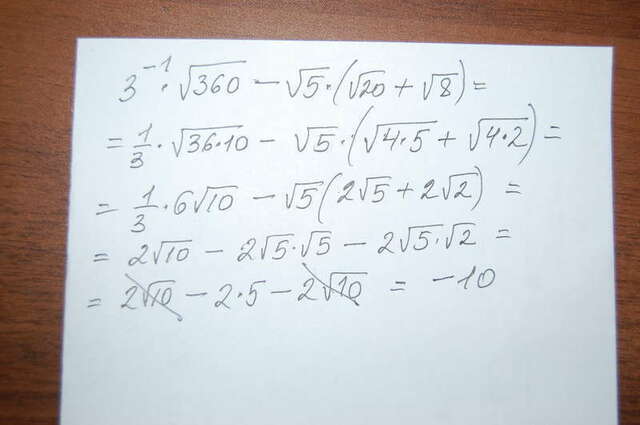 3⁻¹·√360 − √5·(√20 + √8) =
= 1/3·√36·10 − √5·(√4·5 + √4·2) =
= 1/3·6√10 − √5(2√5 + 2√2) =
= 2√10 − 2√5·√5 − 2√5·√2 =
= 2√10 − 2·5 − 2√10 = −10